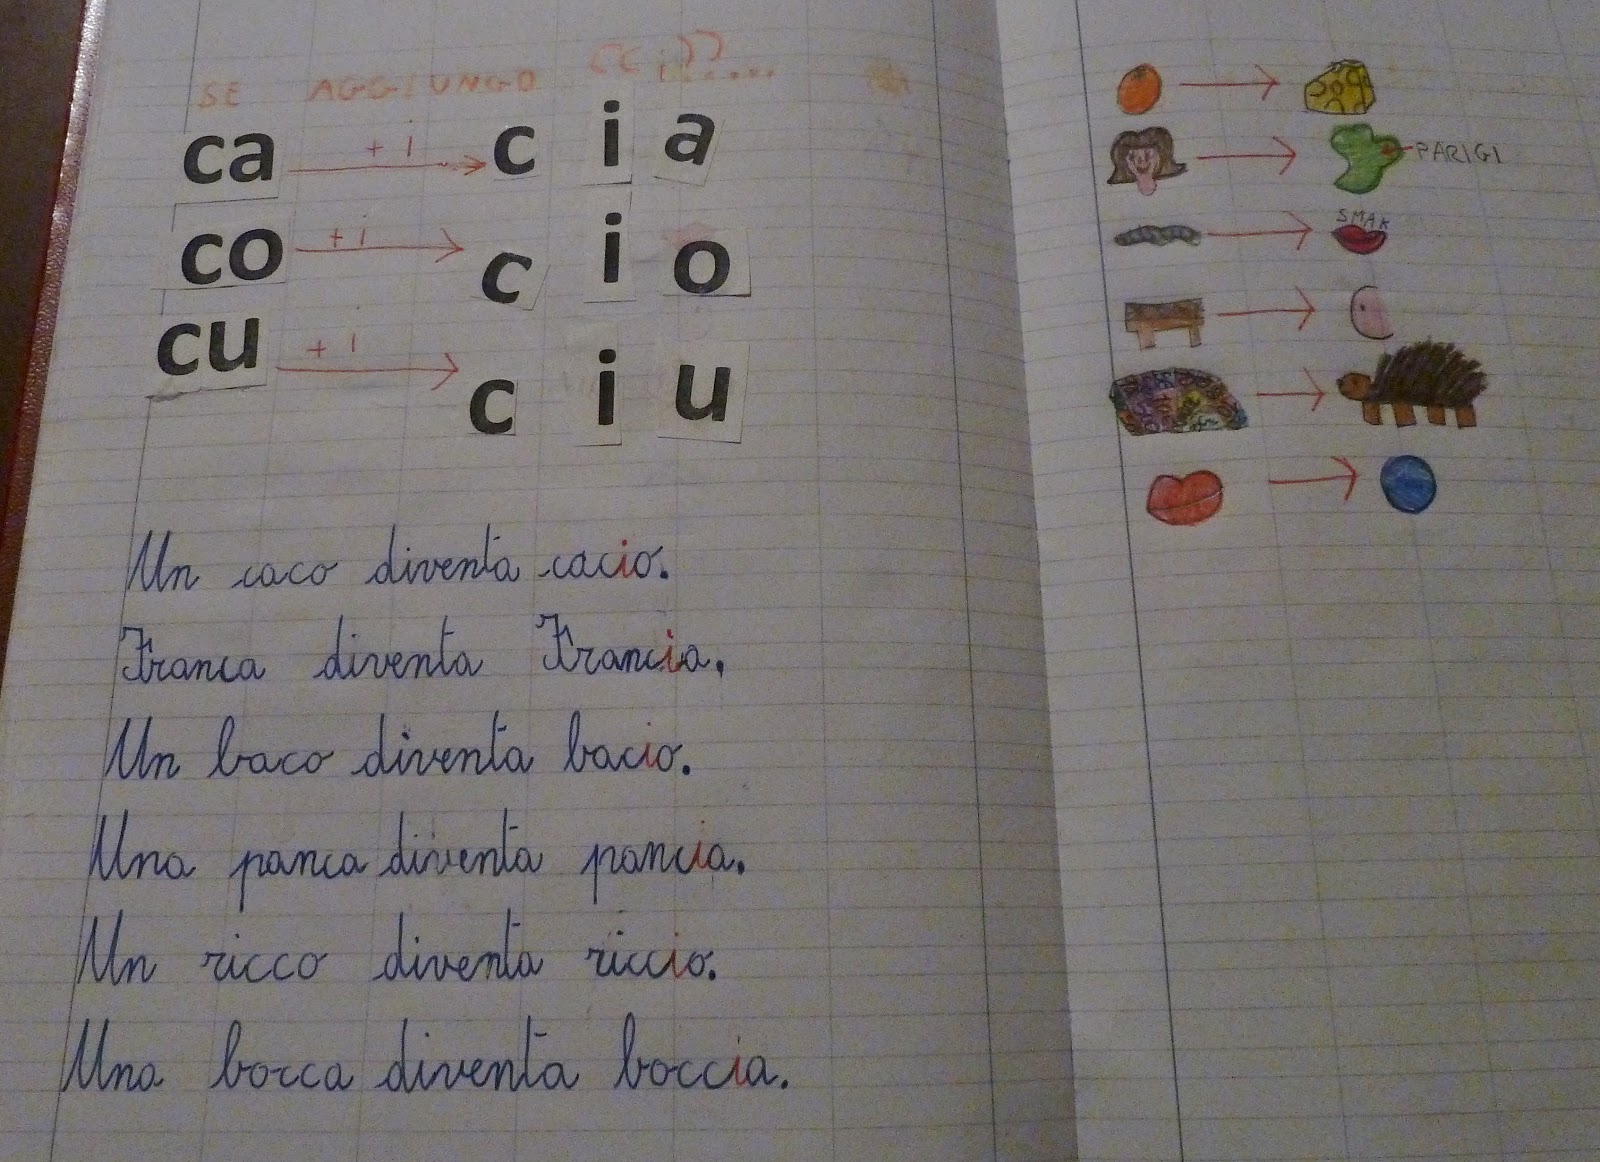 SE AGGIUNGO "i"....
ca + i c i a
co + i c i o
cu + i c i u
Un caco diventa cacio.
Franca diventa Francia.
Un baco diventa bacio.
Una panca diventa pancia.
Un ricco diventa riccio.
Una bocca diventa boccia.
PARIGI
SMAK